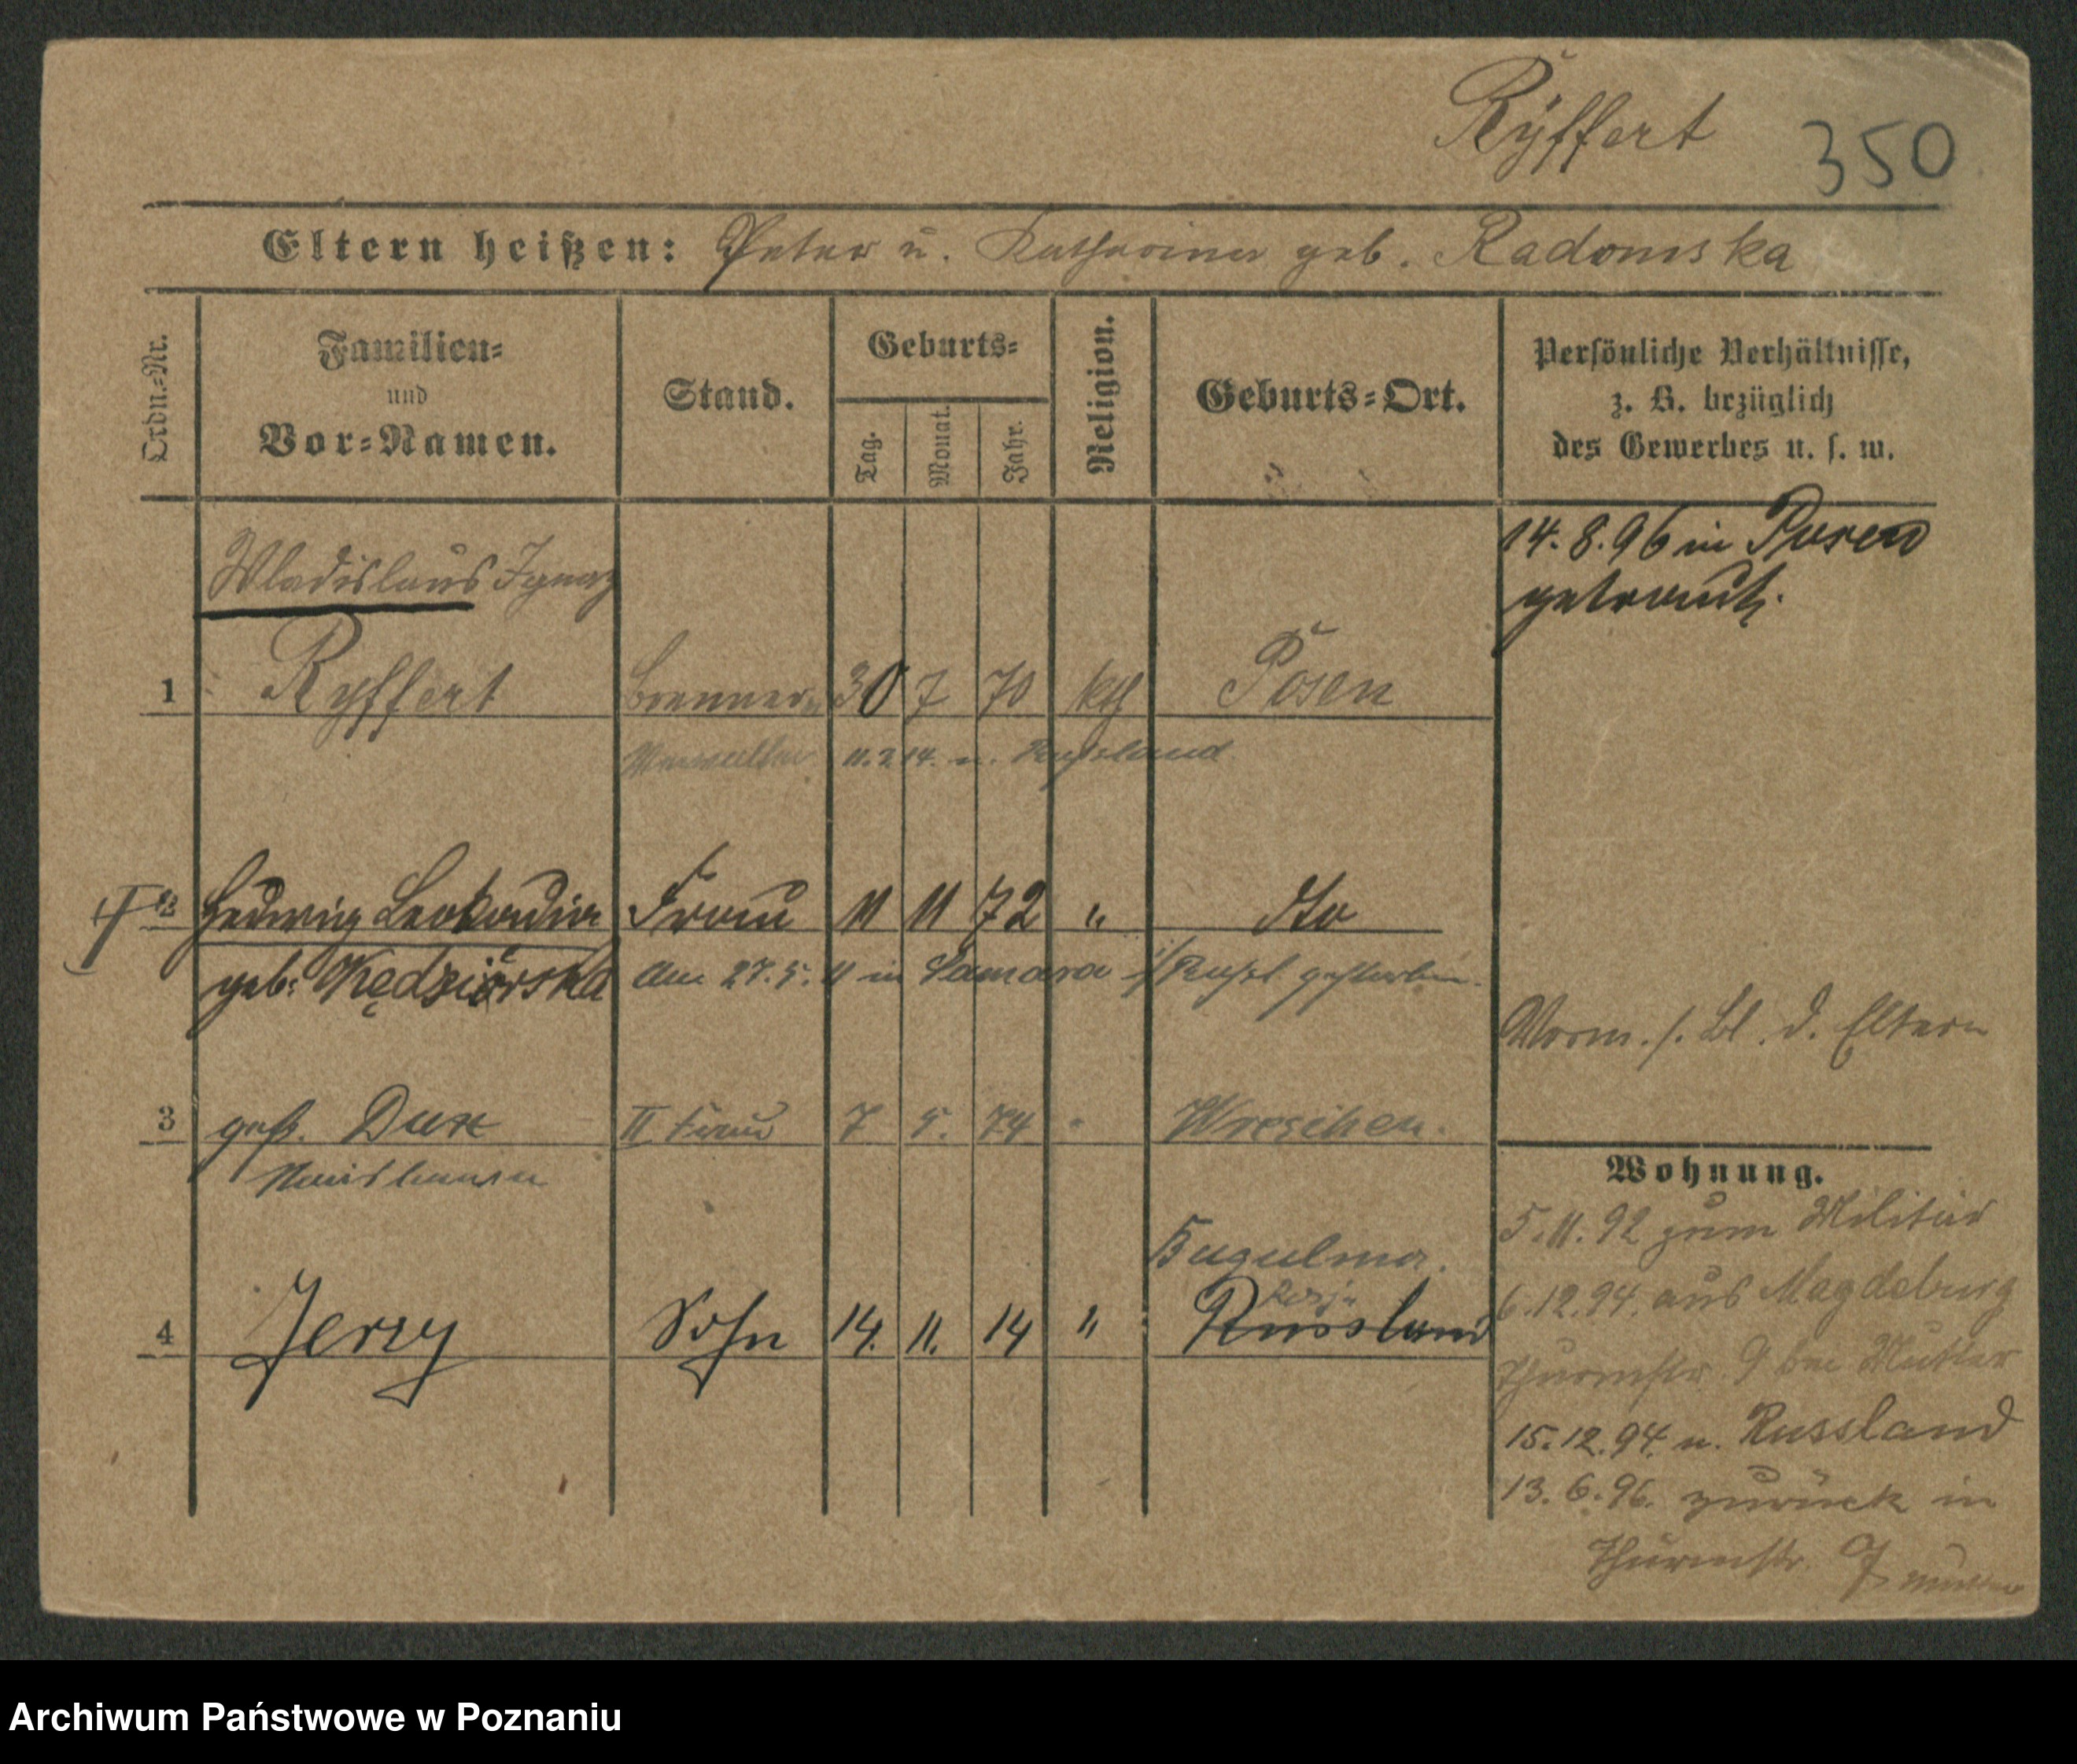 Ryffert 350
Eltern heißen: Peter u. Katharina geb. Radomska
Ordn.-Nr.
Familien-
und
Vor-Namen.
Stand.
Geburts-
Tag.
Monat.
Jahr.
Religion.
Geburts-Ort.
Persönliche Verhältnisse,
z. B. bezüglich
des Gewerbes u. s. w.
14. 8. 96 in Posen
getraut.
Wladislaus Ignaz
1 Ryffert 30 7 70 kth Posen
11. 2. 14. n. Russland
2 Hedwig Leokadia Frau 11 11 72 " dto
geb. Kędziorska am 27. 5. 11 in Samara i/Russl gestorben.
Vorm. s. Bl. d. Eltern
3 gesch. Dux II Frau 7 5. 74 " Wreschen.
Wohnung.
5. 11. 92 zum Militär
Bugulma.
6. 12. 94. aus Magdeburg
4 Jerzy Sohn 14. 11. 14 " Russland
Thurmstr 9 bei Mutter
15. 12. 94. n. Russland
13. 6. 96. zurück in
Thurmstr. 9 Mutter
Archiwum Państwowe w Poznaniu